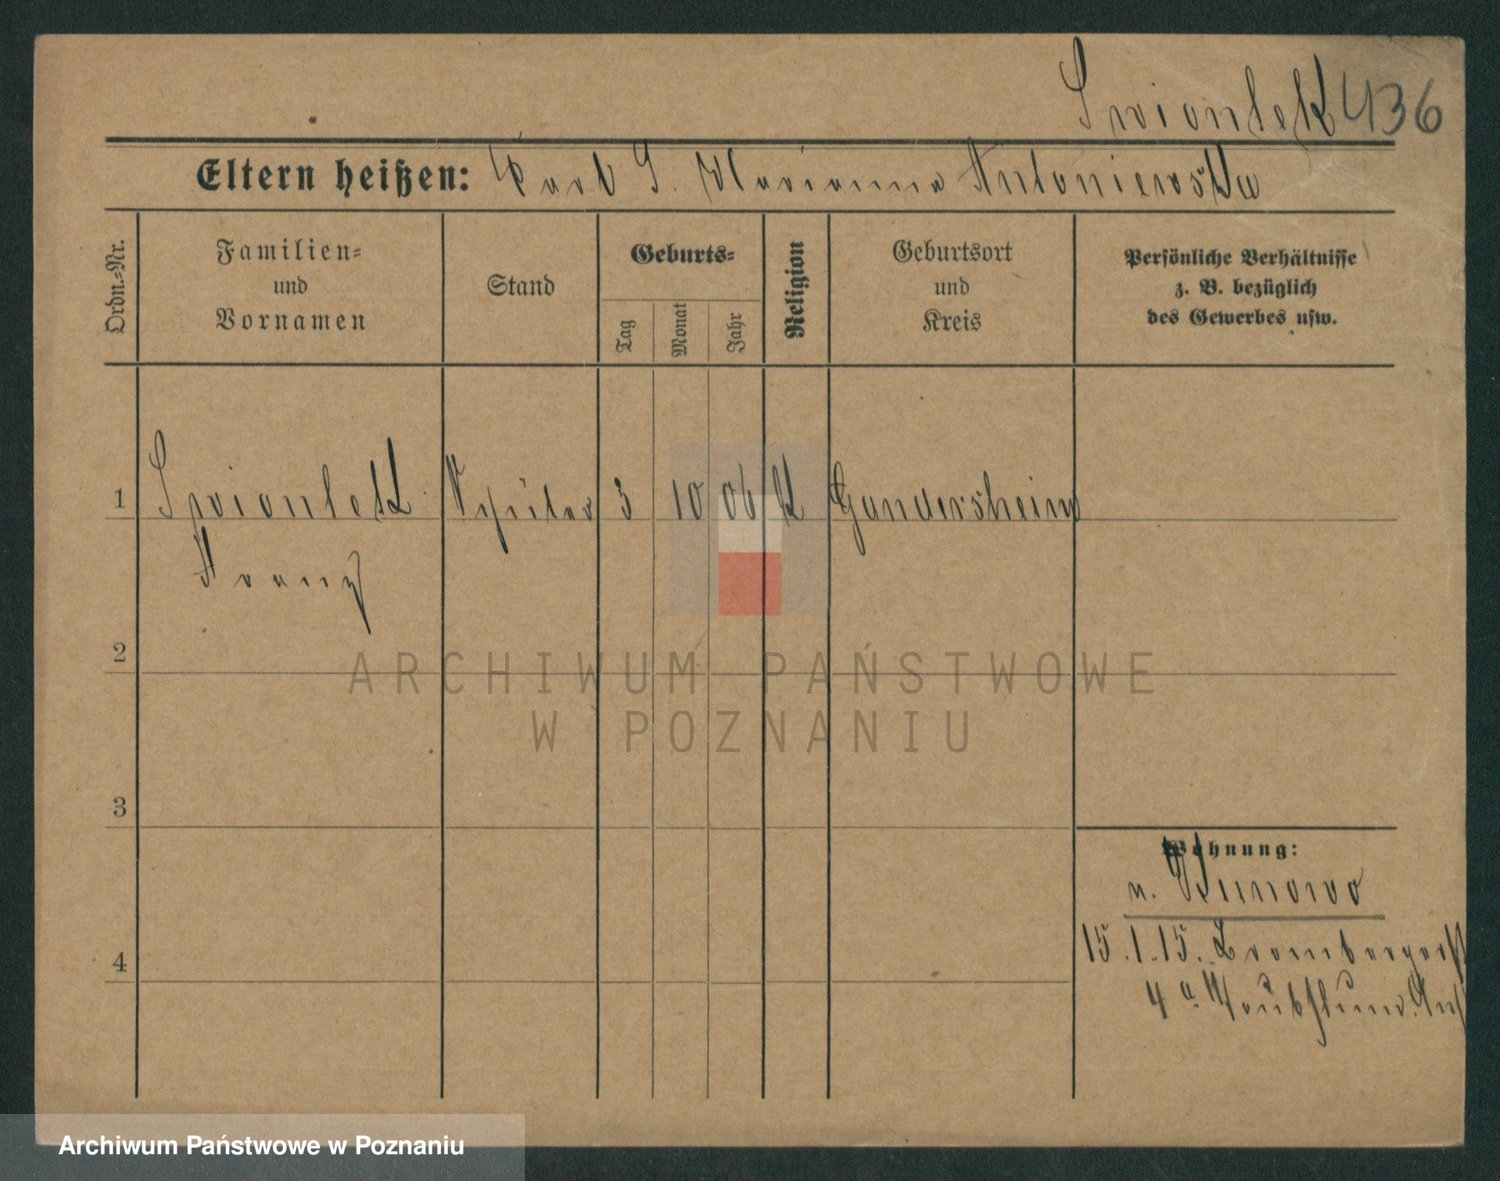 Swiontek 436
Eltern heißen: Karl S. Marianna Antoniewska
Ordn.-Nr.
Familien-
und
Vornamen
Stand
Geburts-
Tag
Monat
Jahr
Religion
Geburtsort
und
Kreis
Persönliche Verhältnisse
z. B. bezüglich
des Gewerbes usw.
1 Swiontek Schüler 3 10 06 K Gandersheim
Franz
2
ARCHIWUM PAŃSTWOWE
W POZNANIU
3
Wohnung:
n. Winowo
4
15.1.15. Brombergerst
4a Taubstumm. Anst
Archiwum Państwowe w Poznaniu